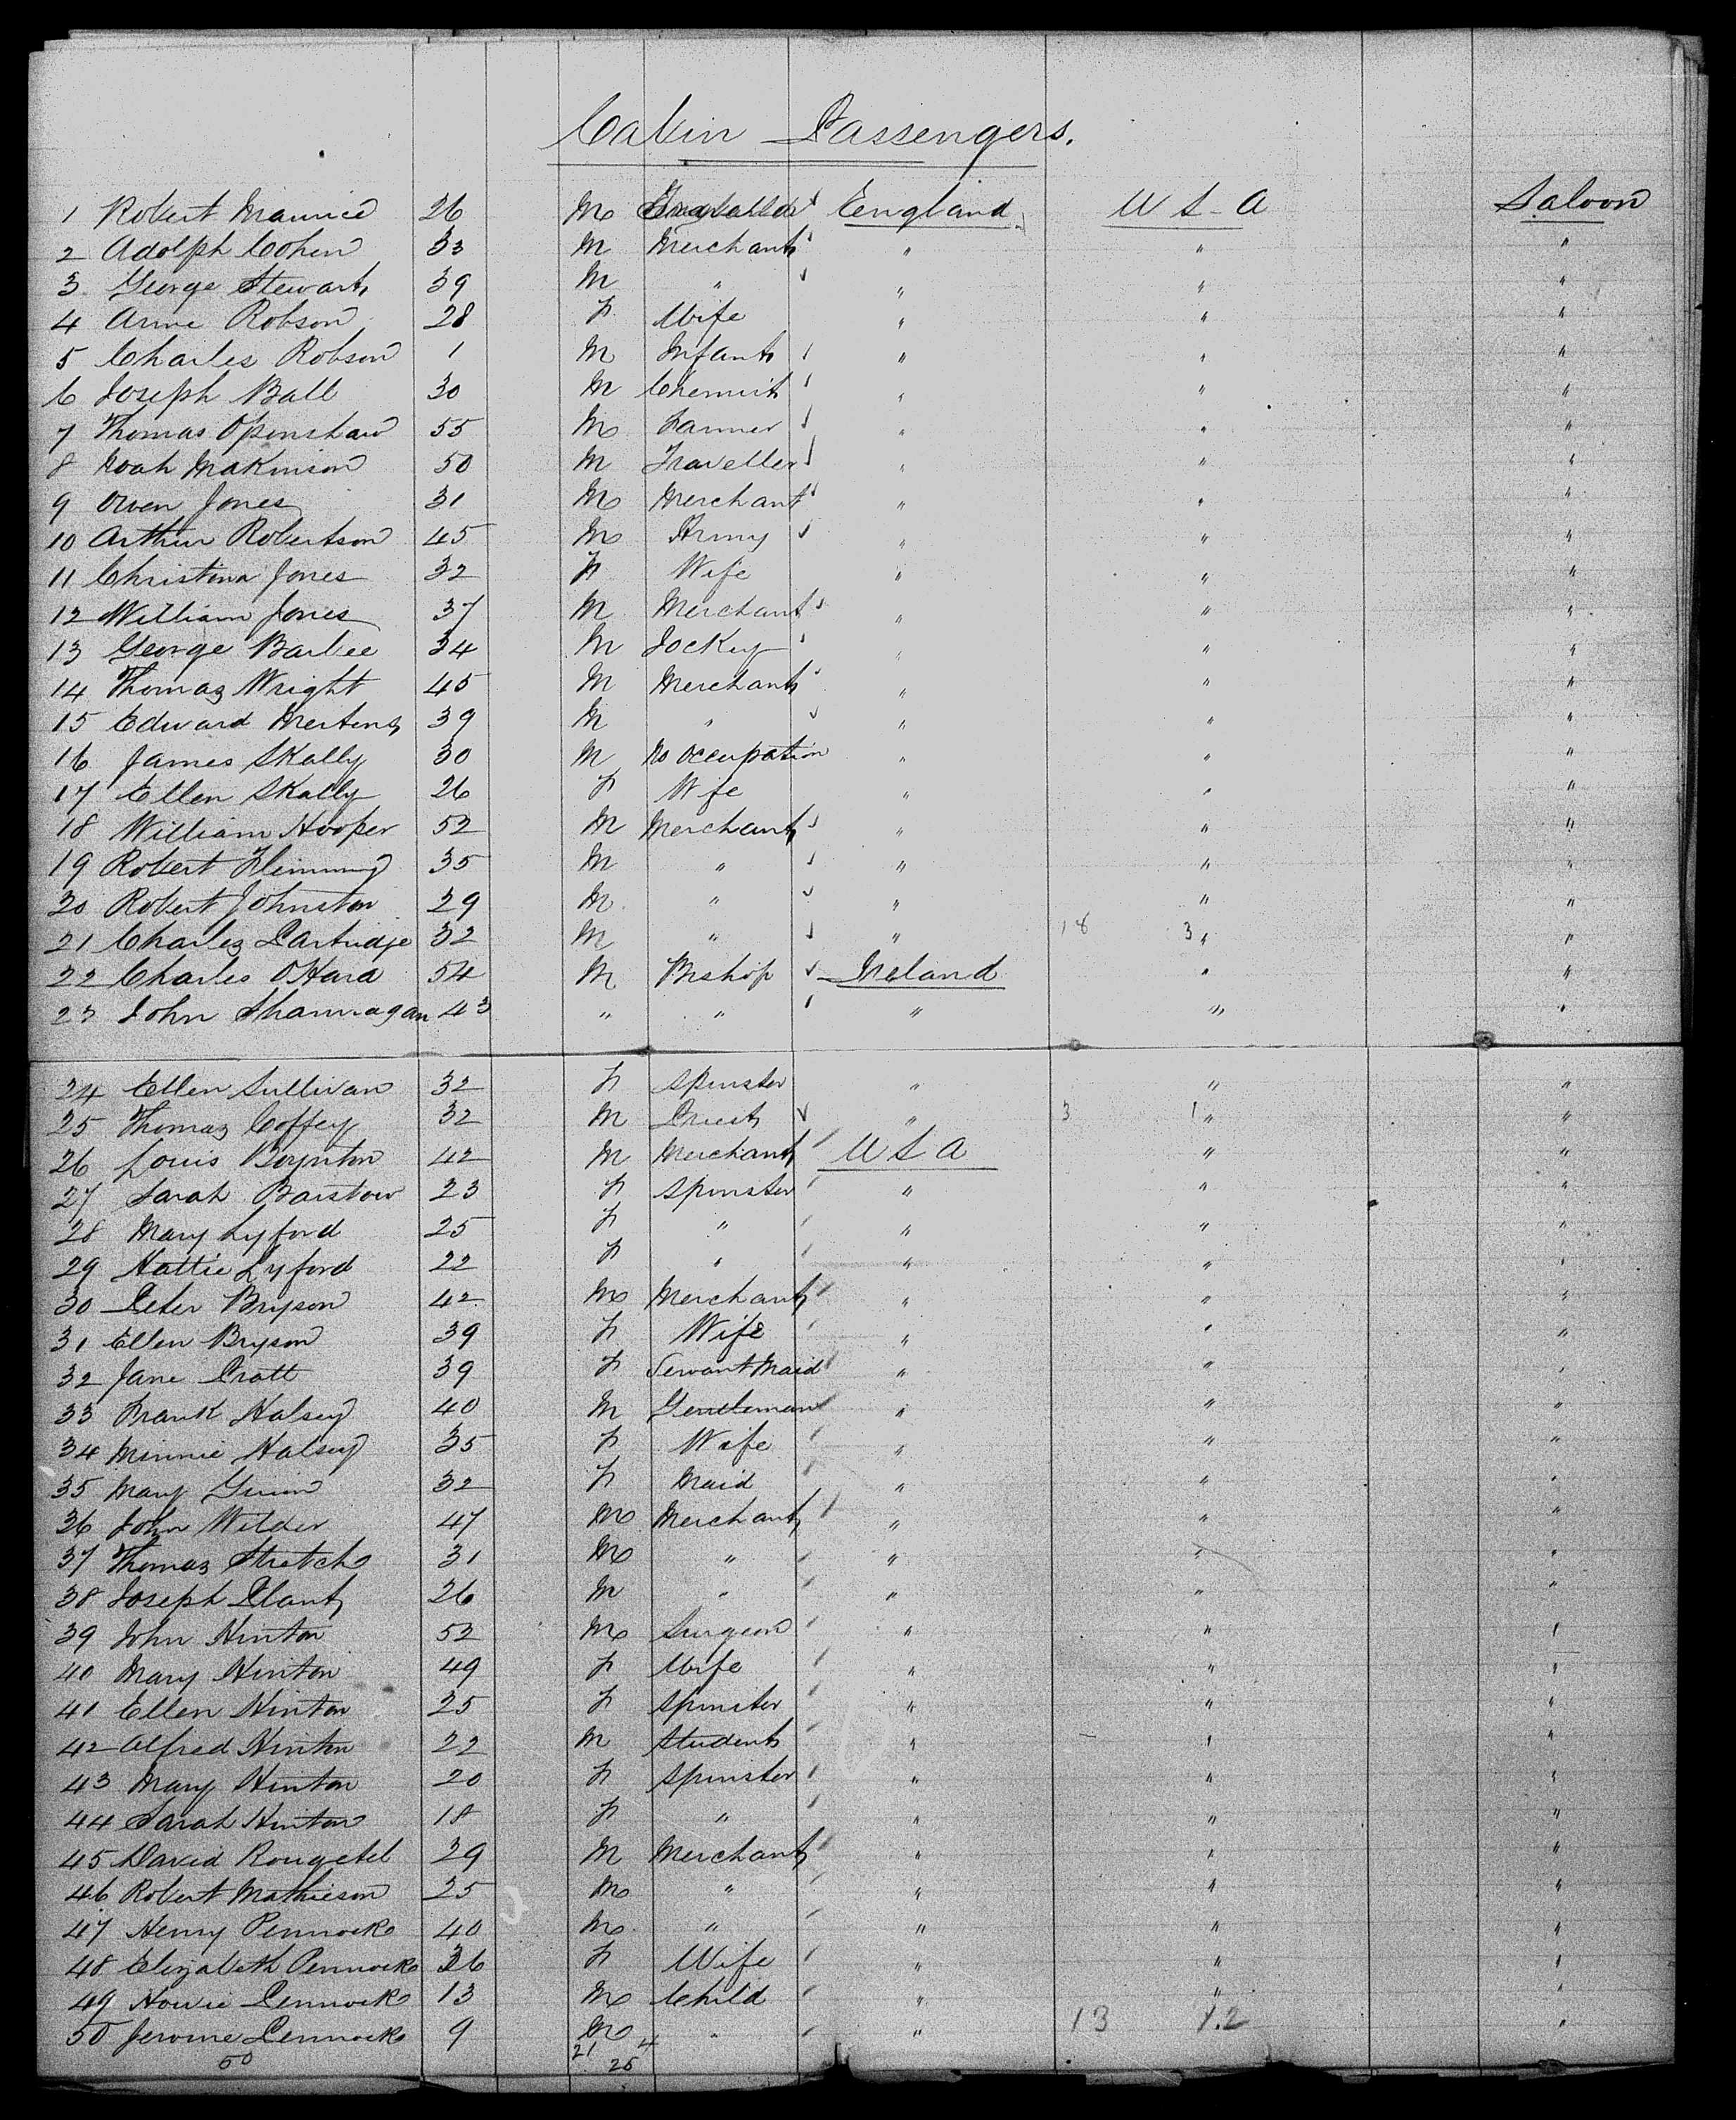 Cabin Passengers.
1 Robert Maurice 26 M England U S A Saloon
2 Adolph Cohen 33 M Merchant " " "
3 George Stewart 39 M " " " "
4 Anne Robson 28 F Wife " " "
5 Charles Robson 1 M Infant " " "
6 Joseph Ball 30 M Chemist " " "
7 Thomas Openshaw 55 M Farmer " " "
8 Noah Makinson 50 M Traveller " " "
9 Owen Jones 31 M Merchant " " "
10 Arthur Robertson 45 M Army " " "
11 Christina Jones 32 F Wife " " "
12 William Jones 37 M Merchant " " "
13 George Barbee 34 M Jockey " " "
14 Thomas Wright 45 M Merchant " " "
15 Edward Mertens 39 M " " " "
16 James Skally 30 M No occupation " " "
17 Ellen Skally 26 F Wife " " "
18 William Hooper 52 M Merchant " " "
19 Robert Flemming 35 M " " " "
20 Robert Johnston 29 M " " " "
21 Charles Partridge 32 M " " 18 3 " "
22 Charles OHara 54 M Bishop Ireland " "
23 John Shannagan 43 " " " " "
24 Ellen Sullivan 32 F Spinster " " "
25 Thomas Coffey 32 M Priest " 3 1 " "
26 Louis Boynton 42 M Merchant U S A " "
27 Sarah Barstow 23 F Spinster " " "
28 Mary Lyford 25 F " " " "
29 Hattie Lyford 22 F " " " "
30 Peter Bryson 42 M Merchant " " "
31 Ellen Bryson 39 F Wife " " "
32 Jane Pratt 39 F Servant Maid " " "
33 Frank Halsey 40 M Gentleman " " "
34 Minnie Halsey 35 F Wife " " "
35 Mary 32 F Maid " " "
36 John Wilder 47 M Merchant " " "
37 Thomas Stretch 31 M " " " "
38 Joseph Plant 26 M " " " "
39 John Hinton 52 M Surgeon " " "
40 Mary Hinton 49 F Wife " " "
41 Ellen Hinton 25 F Spinster " " "
42 Alfred Hinton 22 M Student " " "
43 Mary Hinton 20 F Spinster " " "
44 Sarah Hinton 18 F " " " "
45 David Rougetel 29 M Merchant " " "
46 Robert Mathieson 25 M " " " "
47 Henry Pennock 40 M " " " "
48 Elizabeth Pennock 36 F Wife " " "
49 Howie Pennock 13 M Child " " "
50 Jerome Pennock 9 M " " 13 12 "
50 21 25 4